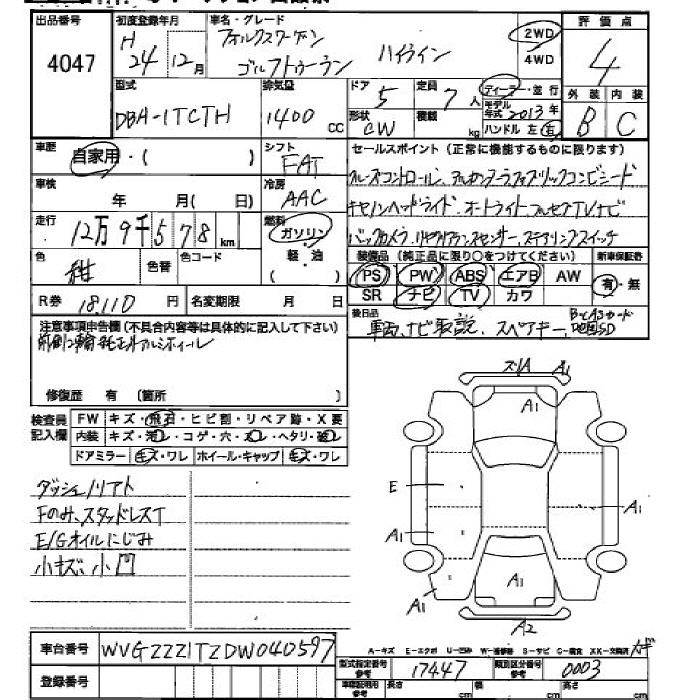 出品番号
4047
初度登録年月
H 24年 12月
車名・グレード
フォルクスワーゲン
ゴルフトゥーラン ハイライン
2WD
4WD
評価点
4
外装 内装
B C
型式
DBA-1TCTH
排気量
1400 CC
ドア
5
定員
7人
形状
CW
積載
kg
ディーラー・並行
モデル年式 2013年
ハンドル 左 右
車歴
自家用・( )
シフト
FAT
車検
年 月( 日)
冷房
AAC
走行
12万9千578km
燃料
ガソリン
軽・油
( )
色
紺
色替
色コード
R券 18,110円
名変期限 月 日
セールスポイント(正常に機能するものに限ります)
クルーズコントロール、アルカンターラファブリックコンビシート
キセノンヘッドライド、オートライト、フルセグTVナビ
バックカメラ、リヤクリアランスセンサー、ステアリングスイッチ
装備品(純正品に限り○をつけてください)
新車保証書
PS PW ABS エアB AW
有・無
SR ナビ TV カワ
後日品
車両、ナビ取説、スペアキー、B-CASカード
地図SD
注意事項申告欄(不具合内容等は具体的に記入して下さい)
前側2輪純正外アルミホイール
修復歴 有 (箇所 )
検査員記入欄
FW キズ・飛石・ヒビ割・リペア跡・X要
内装 キズ・汚レ・コゲ・穴・スレ・ヘタリ・破レ
ドアミラー キズ・ワレ ホイール・キャップ キズ・ワレ
ダッシュノリアト
Fのみ、スタッドレスT
E/Gオイルにじみ
小キズ、小凹
ズレA A1
A1
E
A1
A1
A1
A1
A2
車台番号 WVGZZZ1TZDW040597
登録番号
A-キズ E-エクボ U-凹み W-補修跡 S-サビ C-腐食 XX-交換済
型式指定番号 参考 17447
類別区分番号 参考 0003
車輌証明用 参考
長さ cm 幅 cm 高さ cm